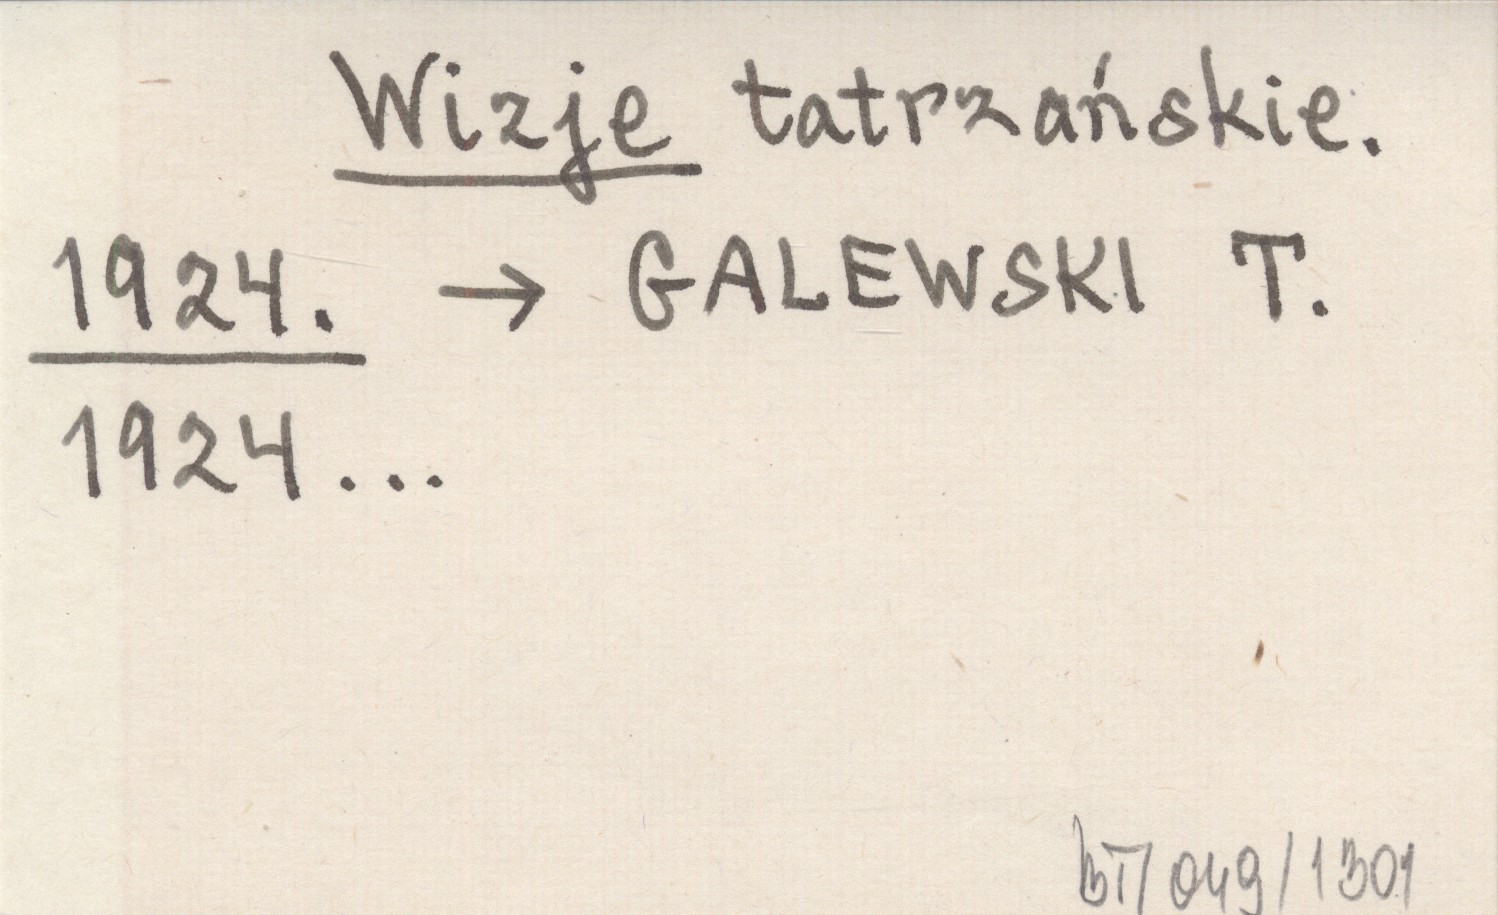 Wizje tatrzańskie.
1924. → GALEWSKI T.
1924...
BT/049/1301